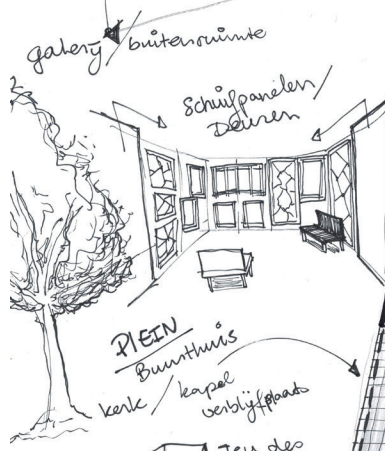 galerij / buitenruimte
Schuifpanelen /
Deuren
PLEIN
Buurthuis
kerk / kapel
verblijfplaats
des